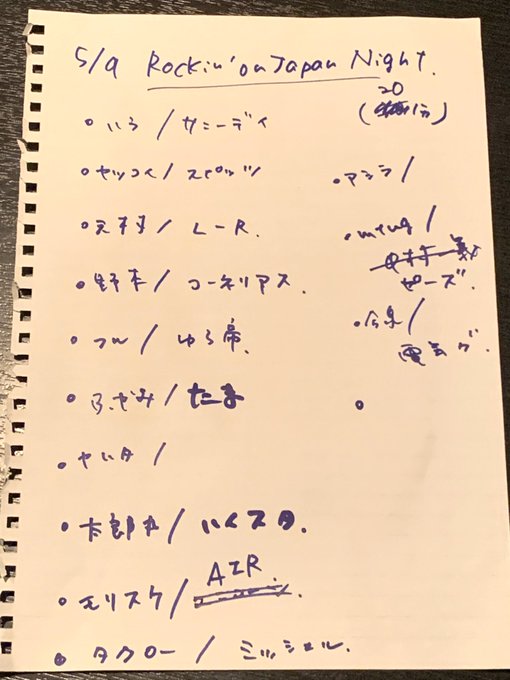 5/9 Rockin'on Japan Night.
20
・いろ/サニーデイ
・ヤッコイ/スピッツ
・天村/L-R.
・野本/コーネリアス.
・フル/ゆら帝.
・ふせみ/たま
・ヤハタ/
・太郎丸/ハイスタ.
・モリスケ/AIR.
・タクロー/ミッシェル.
・アシラ/
・mtng/
ピーズ.
・合泉/
電気グ.